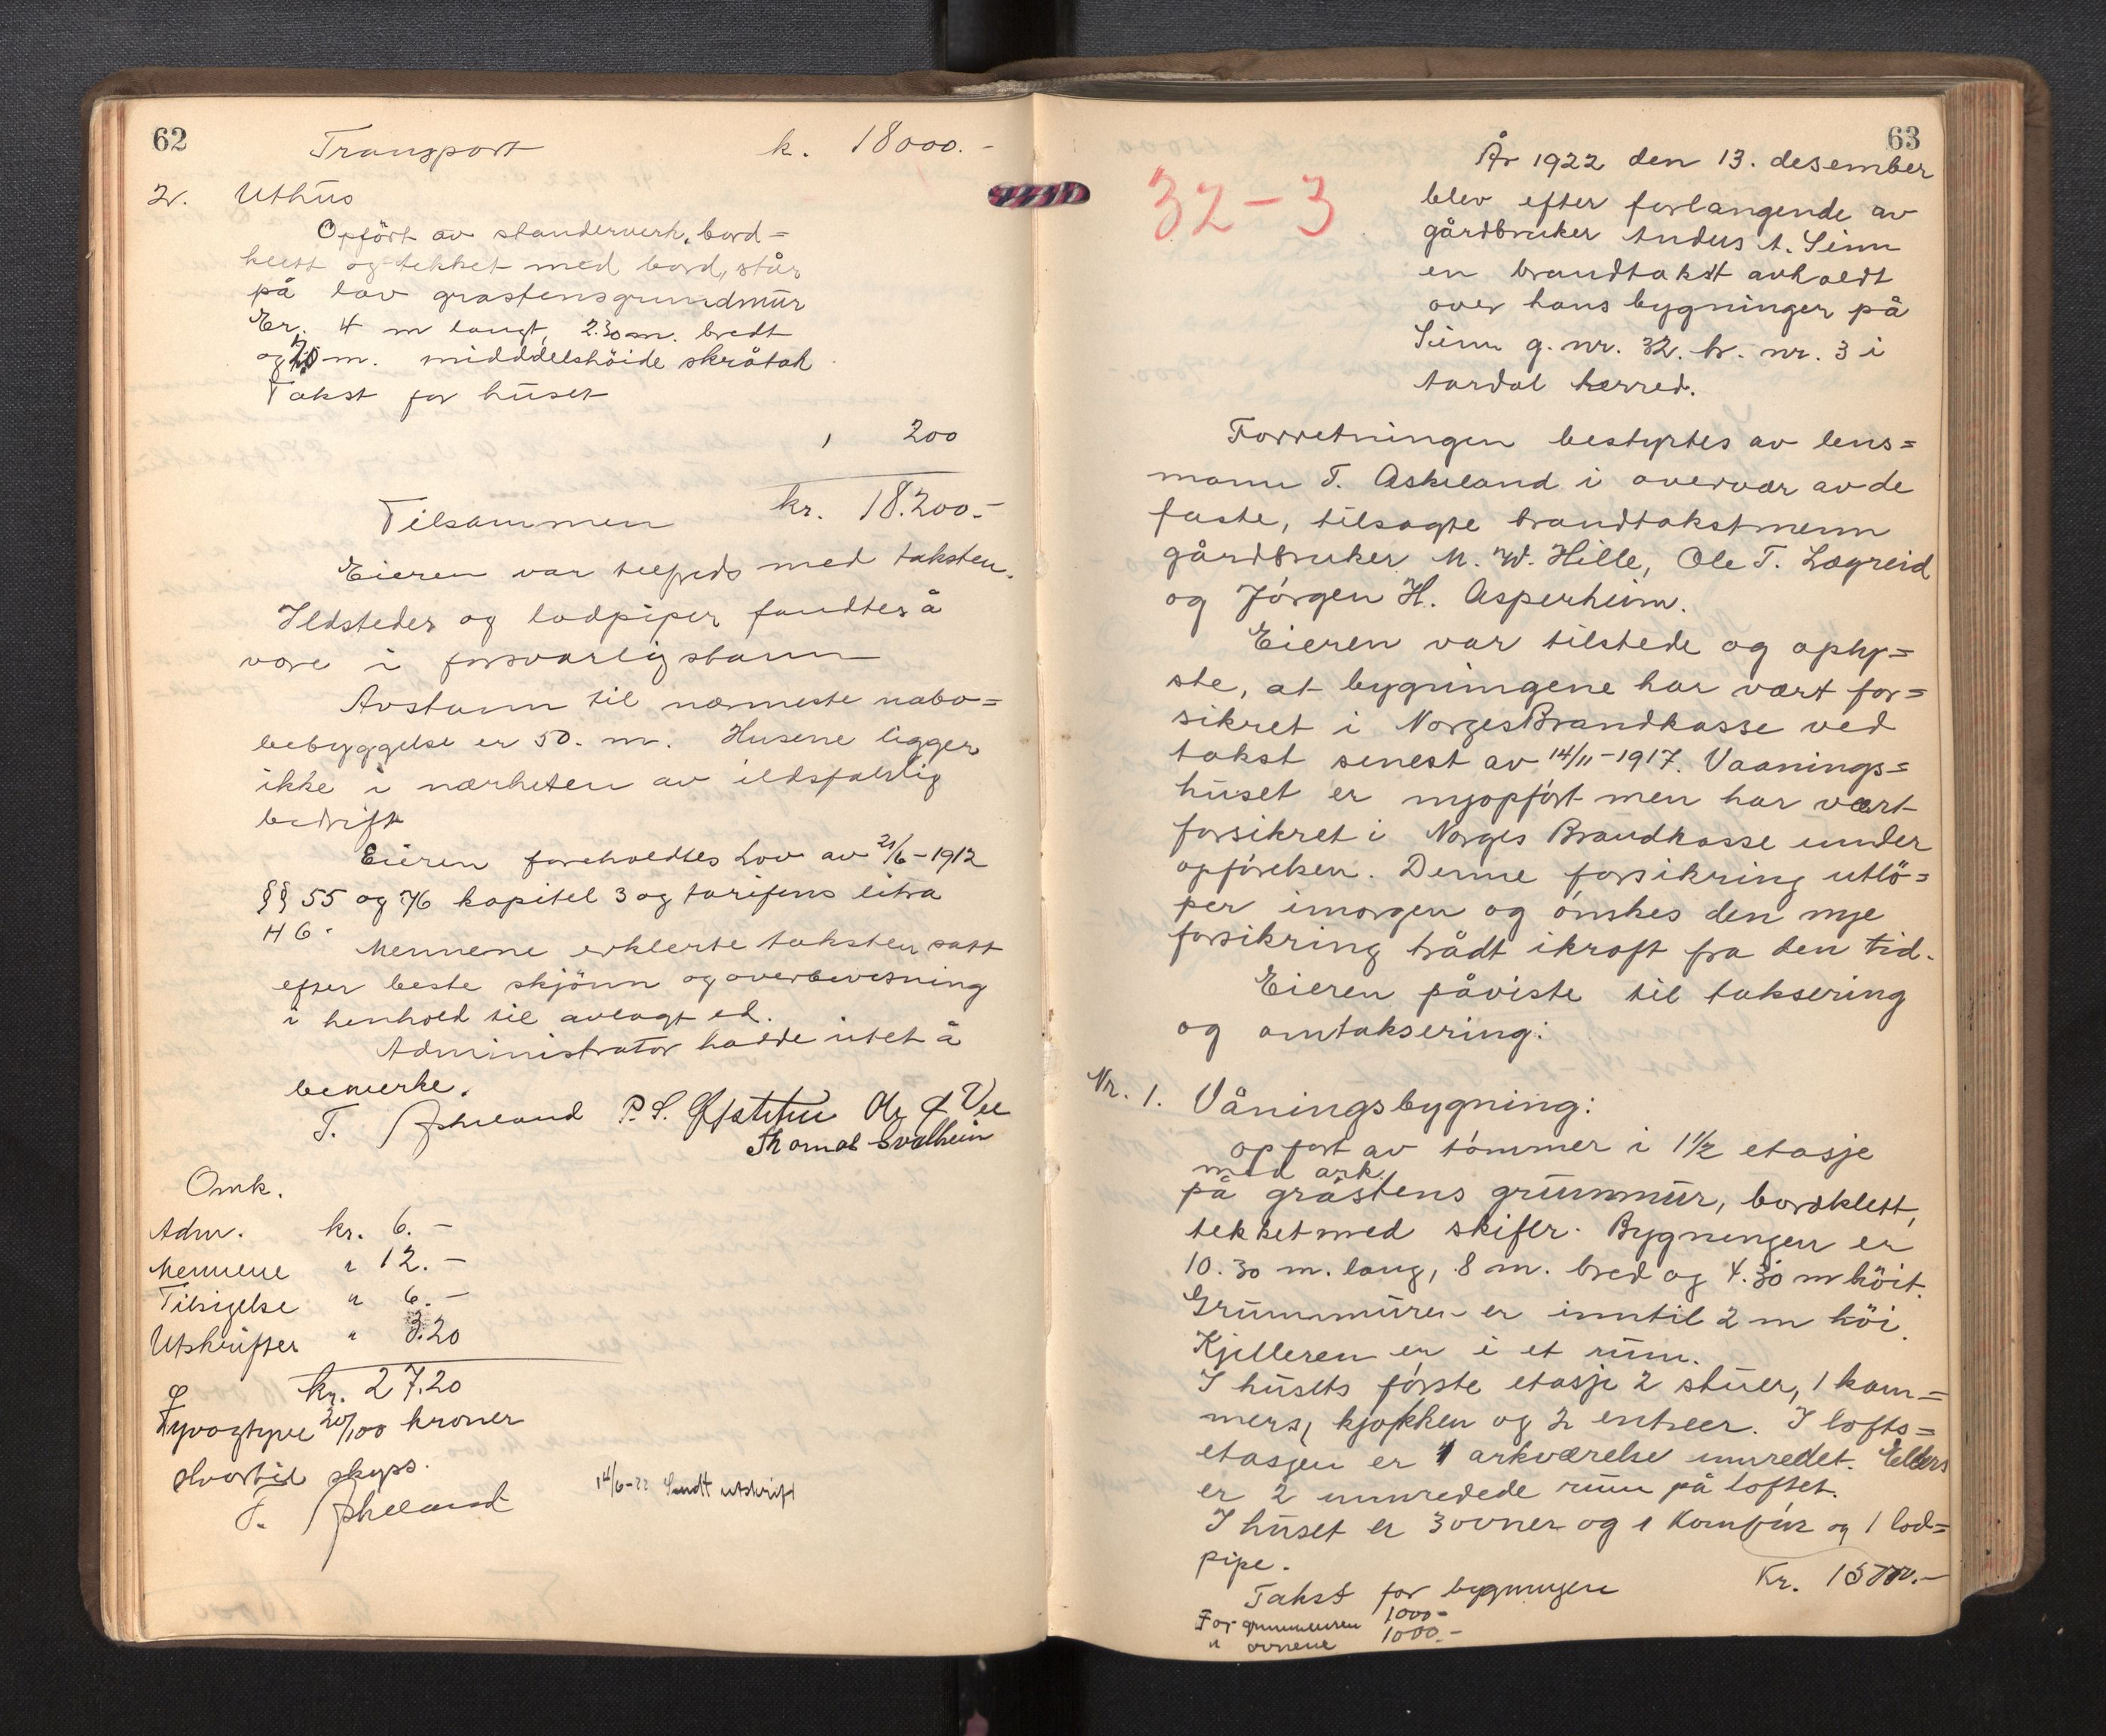 62
Transport k. 18000.-
2. Uthus
Opført av standerverk, bord=
klett og tekket med bord, står
på lav gråstensgrundmur
Er. 4 m langt, 2.30 m. bredt
og m. midddelshöide skråtak
Takst for huset
" 200
Tilsammen kr. 18.200.-
Eieren var tilfreds med taksten.
Ildsteder og lodpiper fandtes å
være i forsvarlig stann
Avstann til nærmeste nabo=
bebyggelse er 50. m. Husene ligger
ikke i nærheten av ildsfarlig
bedrift
Eieren foreholdtes Lov av 21/6-1912
§§ 55 og 76 kapitel 3 og tarifens litra
H 6.
Mennene erklerte taksten satt
efter beste skjönn og overbevisning
i henhold til avlagt ed.
Administrator hadde intet å
bemerke.
T. Askeland P. S. Ole J. Vee
Thomas Svalheim
Omk.
Adm. kr. 6.-
Mennene " 12.-
Tilsigelse " 6.-
Utskrifter " 3.20
kr. 27.20
Tyvogtyve 20/100 kroner
Hvortil skyss.
T. Askeland
14/6-22 Sendt utskrift
63
32-3
År 1922 den 13. desember
blev efter forlangende av
gårdbruker Anders A. Seim
en brandtakst avholdt
over hans bygninger på
Seim g. nr. 32. br. nr. 3 i
Aardal herred.
Forretningen bestyrtes av lens=
mann T. Askeland i overvær av de
faste, tilsagte brandtakstmenn
gårdbruker M. W. Hille, Ole T. Lægreid
og Jörgen H. Asperheim.
Eieren var tilstede og oply=
ste, at bygningene har vært for=
sikret i Norges Brandkasse ved
takst senest av 14/11-1917. Vaanings=
huset er nyopfört men har vært
forsikret i Norges Brandkasse under
opförelsen. Denne forsikring utlö=
per imorgen og önskes den nye
forsikring trådt ikraft fra den tid.
Eieren påviste til taksering
og omtaksering:
Nr. 1. Våningsbygning:
opfört av tömmer i 1 1/2 etasje
med ark
på gråstens grunnmur, bordklett,
tekket med skifer. Bygningen er
10.30 m. lang, 8 m. bred og 4.30 m höit.
Grunnmuren er inntil 2 m höi.
Kjelleren er i et rum.
I husets förste etasje 2 stuer, 1 kam=
mers, kjökken og 2 entreer. I lofts=
etasjen er 1 arkværelse innredet. Ellers
er 2 innredede rum på loftet.
I huset er 3 ovner og 1 Komfür og 1 lod=
pipe.
Takst for bygningen Kr. 15000.-
For grunnmuren 1000-
" ovnene 1000.-